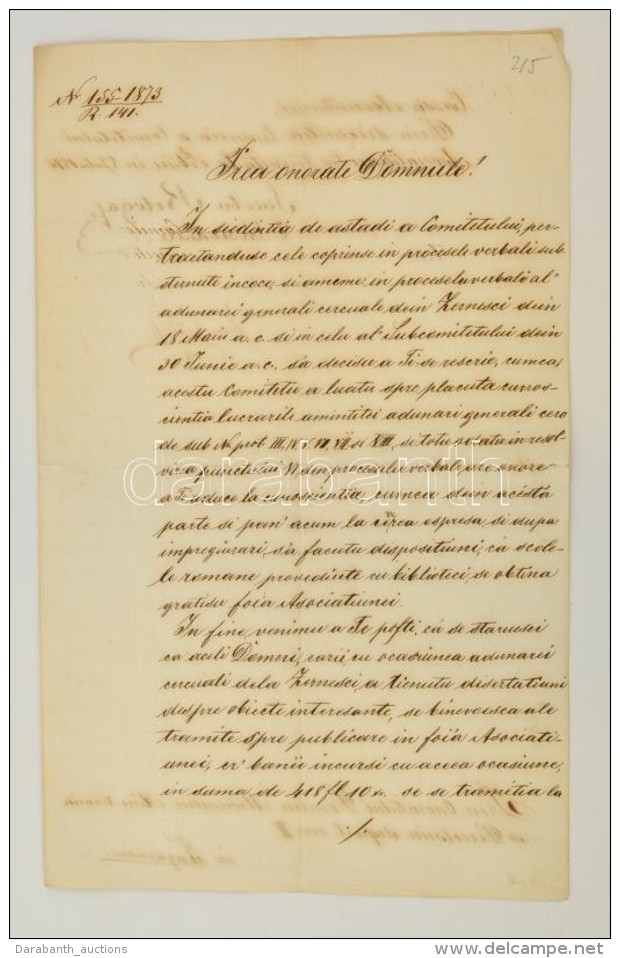 215
Nr 155-1873
R. 141.
Prea onorate Domnule!
In siedintia de astadi a Comitetului, per-
tractandusc cele coprinse in procesele verbali sub-
sternute incoce, si anume: in procesulu verbalu al'
adunarei generali cercuale dein Zernesci dein
18 Maiu a. c. si in celu al' Subcomitetului dein
30 Junie a. c. s'a decisu a Ti-se rescrie, cumca,
acestu Comitetu a luatu spre placuta cunos-
cientia lucrarile amintitei adunari generali cerc
de sub Nr prot. III, IV, V, VI, VII si XIII, si totu odatu in resol-
virea punctului VI, din procesulu verbale are onore
a Ti aduce la cunoscientia, cumca dein acésta
parte si pan' acum la cerea espresa, si dupa
impregiurari, s'a facutu dispositiuni, cá scole-
le romane provediute cu biblioteci, se obtina
gratisu foia Asociatiunei.
In fine, venimu a Te pofti, cá se staruesci
ca aceli Domni, carii, cu ocasiunea adunarei
cercuali dela Zernesci, a tienutu disertatiuni
despre obiecte interesante, se binevoesca ale
tramite spre publicare in foi'a Asociati-
unei, er' banii incursi cu aceea ocasiune,
in suma de 418 fl 10 x. se se tramitia la
./.
darabanth
Darabanth_auctions
www.delcampe.net